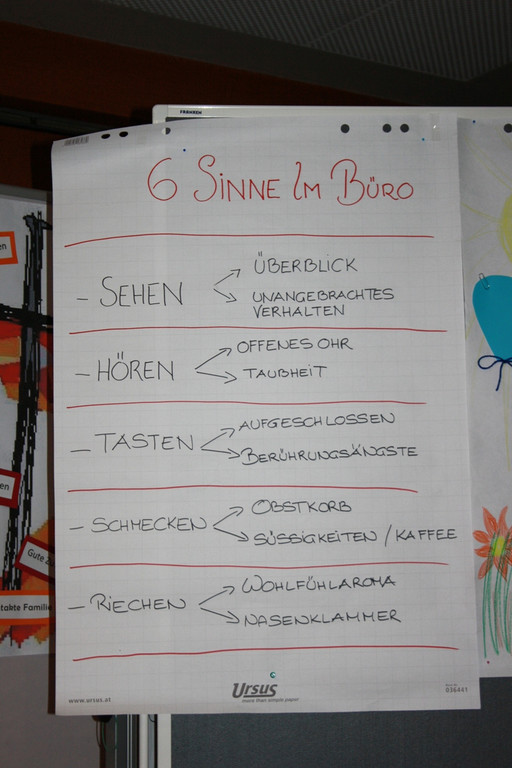 6 SINNE IM BÜRO
- SEHEN
ÜBERBLICK
UNANGEBRACHTES
VERHALTEN
- HÖREN
OFFENES OHR
TAUBHEIT
- TASTEN
AUFGESCHLOSSEN
BERÜHRUNGSÄNGSTE
- SCHMECKEN
OBSTKORB
SÜSSIGKEITEN / KAFFEE
- RIECHEN
WOHLFÜHLAROMA
NASENKLAMMER
www.ursus.at
URSUS
more than simple paper
036441
Gute